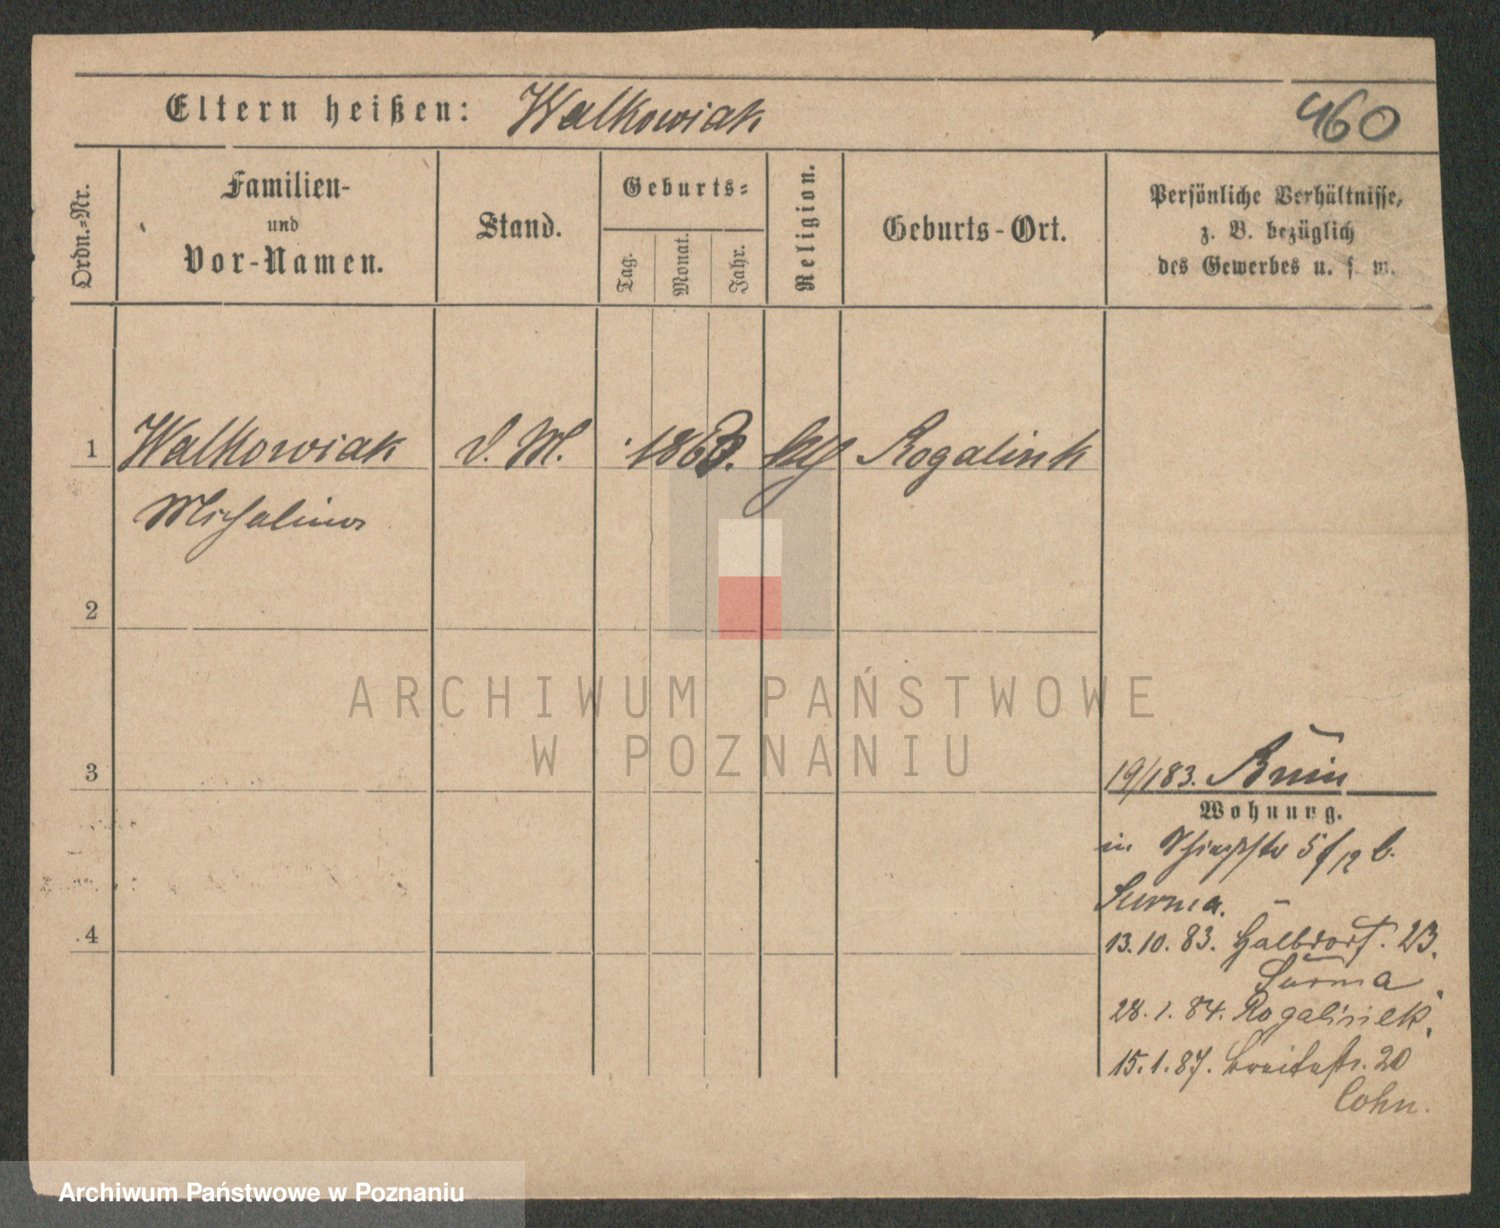 Eltern heißen: Walkowiak
460
Ordn.=Nr.
Familien-
und
Vor-Namen.
Stand.
Geburts=
Tag.
Monat.
Jahr.
Religion.
Geburts-Ort.
Persönliche Verhältnisse,
z. B. bezüglich
des Gewerbes u. s. w.
1 Walkowiak D. M. kth Rogalink
Michalina
2
3
4
19/183. Bnin
Wohnung.
in 5/12 b.
Surma.
13.10.83. Halbdorf. 23.
Surma.
28.1.84. Rogalinek.
15.1.87. Breitestr. 20
Cohn.
ARCHIWUM PAŃSTWOWE
W POZNANIU
Archiwum Państwowe w Poznaniu